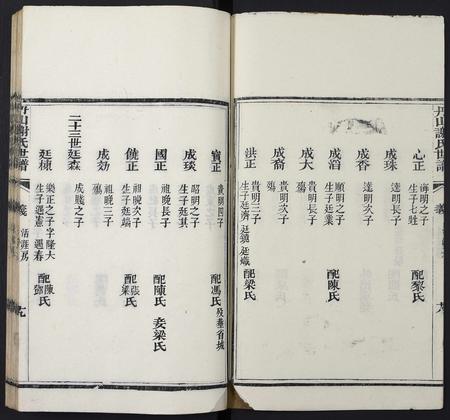 丹山謝氏世譜
心正
誨明之子
生子七甡
配黎氏
成珠
達明長子
成香
達明次子
成滔
順明之子
生子廷業
配陳氏
成大
貴明長子
殤
成裔
貴明次子
殤
洪正
貴明三子
生子廷濟 廷獍 廷熾
配梁氏
寶正
貴明四子
配馮氏
成琰
昭明之子
生子廷其
國正
祖晚長子
配陳氏 妾梁氏
饒正
祖晚次子
生子廷端
配張氏
梁
成効
祖晚三子
殤
二十三世廷森
成賤之子
廷棟
樂正之子字隆大
生子遇憲 遇春
配陳氏
鄧
丹山謝氏世譜